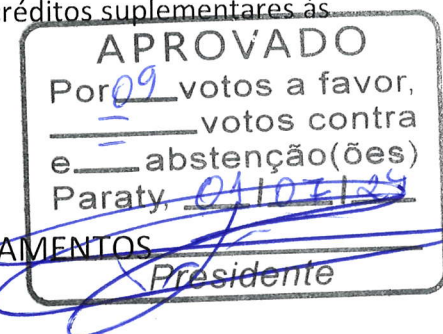 réditos suplementares às
APROVADO
Por 09 votos a favor,
= votos contra
e = abstenção(ões)
Paraty, 01/07/24
AMENTOS
Presidente